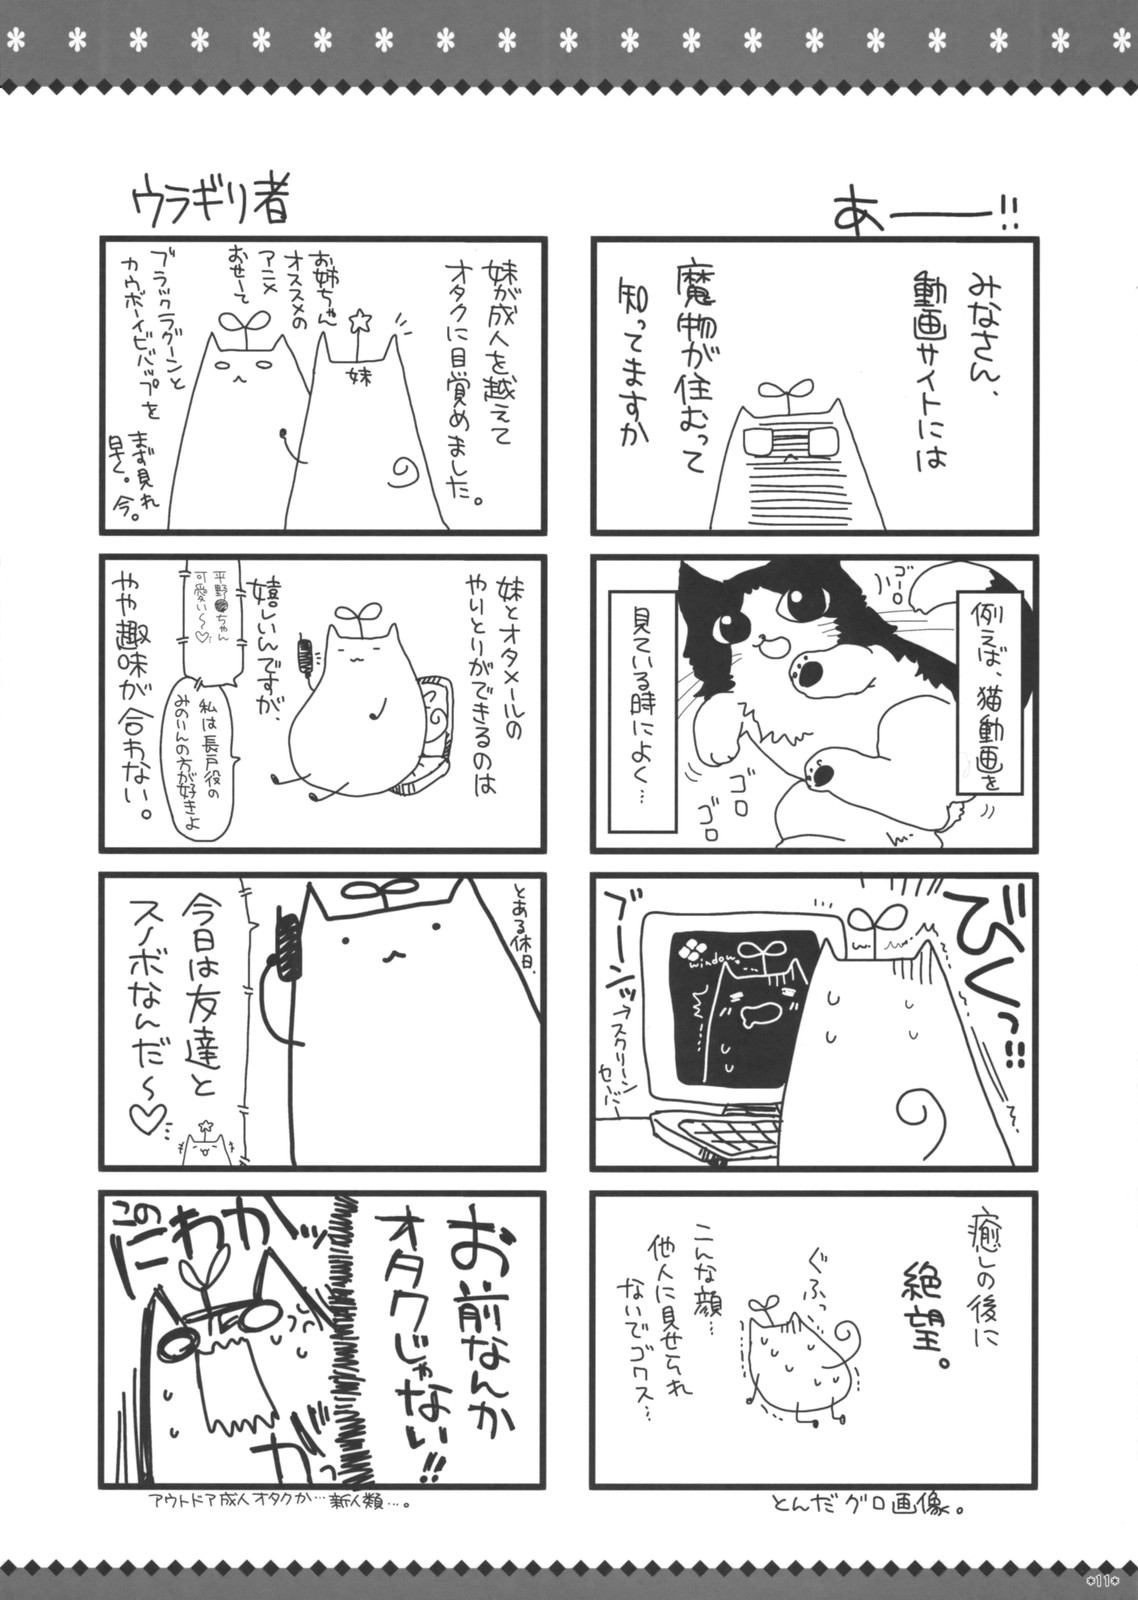 あ――!!
みなさん、
動画サイトには
魔物が住むって
知ってますか
例えば、猫動画を
見ている時によく…
ゴーロ
ゴロ
ゴロ
びくっ!!!
window。
ブーンッ
→スクリーン
セーバー
癒しの後に
絶望。
ぐふっ
こんな顔…
他人に見せられ
ないでゴワス…
とんだグロ画像。
ウラギリ者
妹が成人を越えて
オタクに目覚めました。
お姉ちゃん
オススメの
アニメ
おせーて
妹
ブラックラグーンと
カウボーイビバップを
まず見れ
早く。今。
妹とオタメールの
やりとりができるのは
嬉しいんですが、
平野●ちゃん
可愛い〜♡
私は長戸役の
みのりんの方が好きよ
やや趣味が合わない。
とある休日、
今日は友達と
スノボなんだ〜♡
お前なんか
オタクじゃない!!
この
にわかッ
カッ
アウトドア成人オタクか…新人類…。
*11*